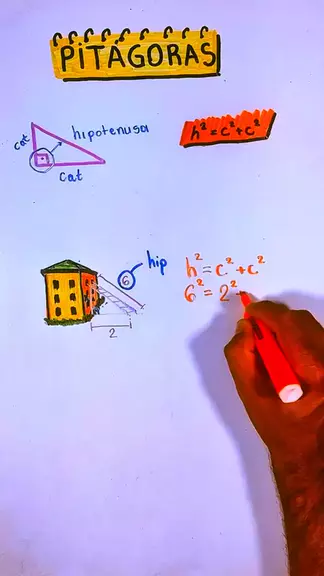 PITÁGORAS
cat
hipotenusa
cat
h² = c² + c²
6
hip
2
h² = c² + c²
6² = 2² -